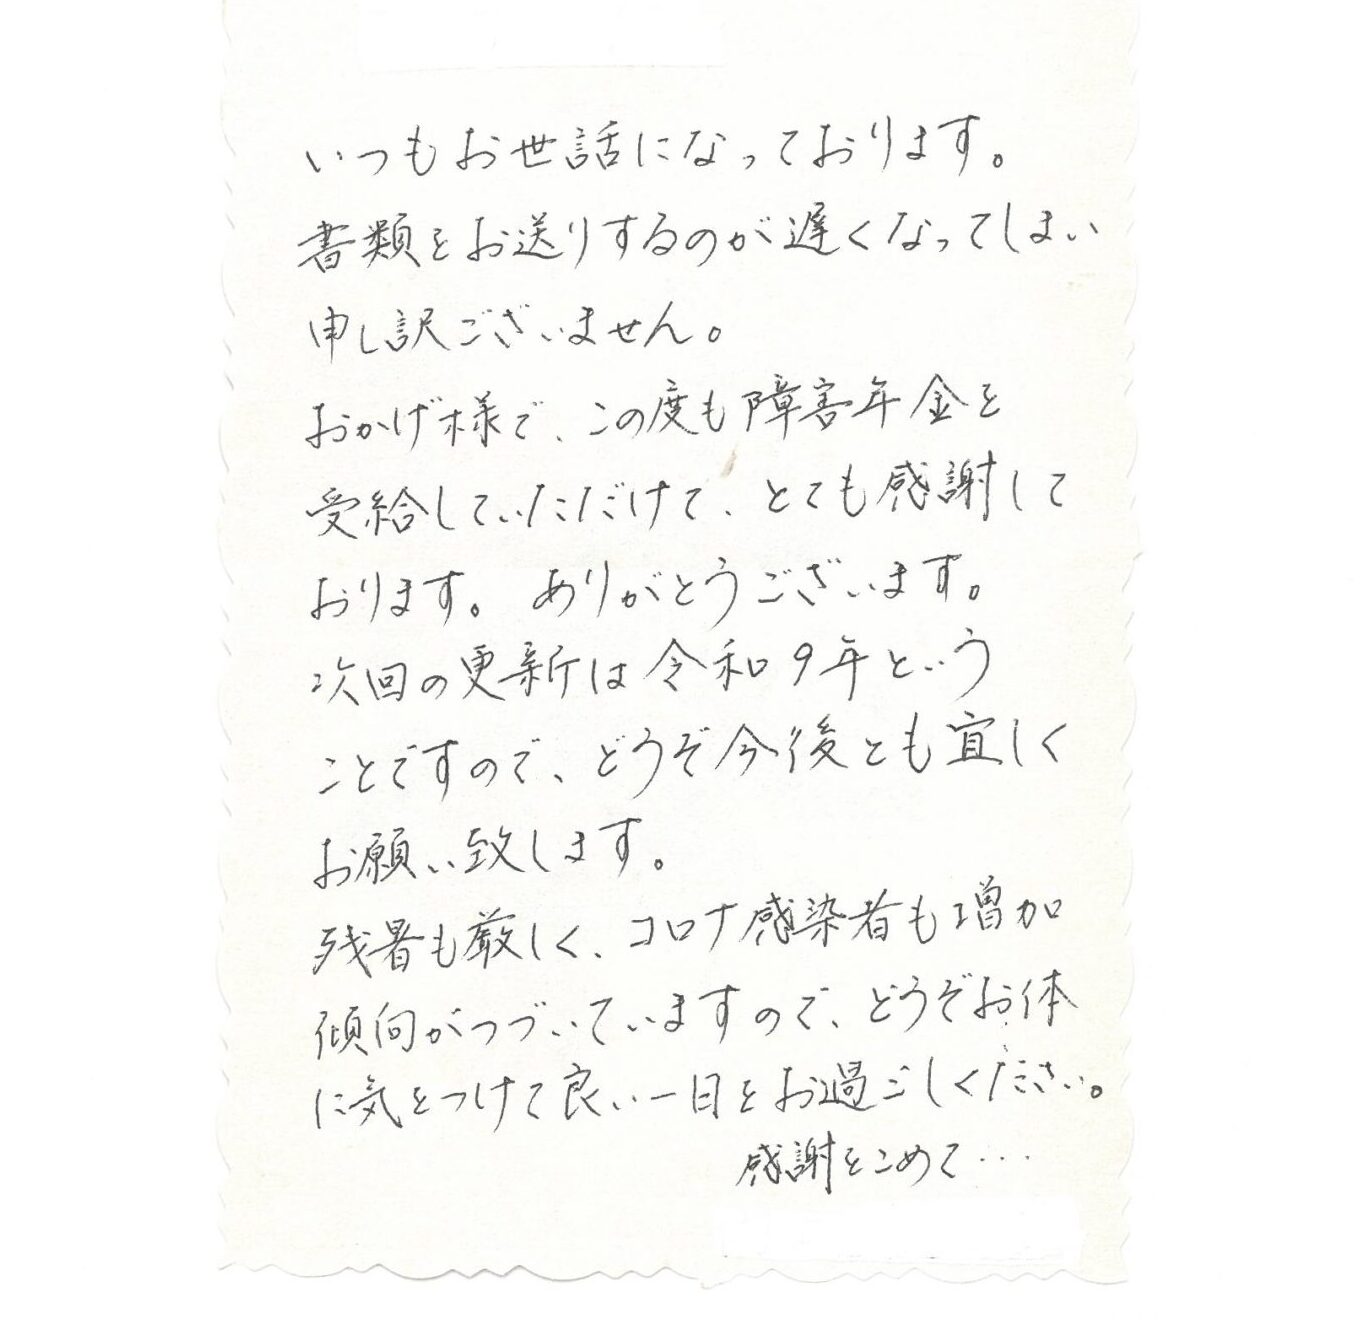 いつもお世話になっております。
書類をお送りするのが遅くなってしまい
申し訳ございません。
おかげ様で、この度も障害年金を
受給していただけて、とても感謝して
おります。ありがとうございます。
次回の更新は令和9年という
ことですので、どうぞ今後とも宜しく
お願い致します。
残暑も厳しく、コロナ感染者も増加
傾向がつづいていますので、どうぞお体
に気をつけて良い一日をお過ごしください。
感謝をこめて…